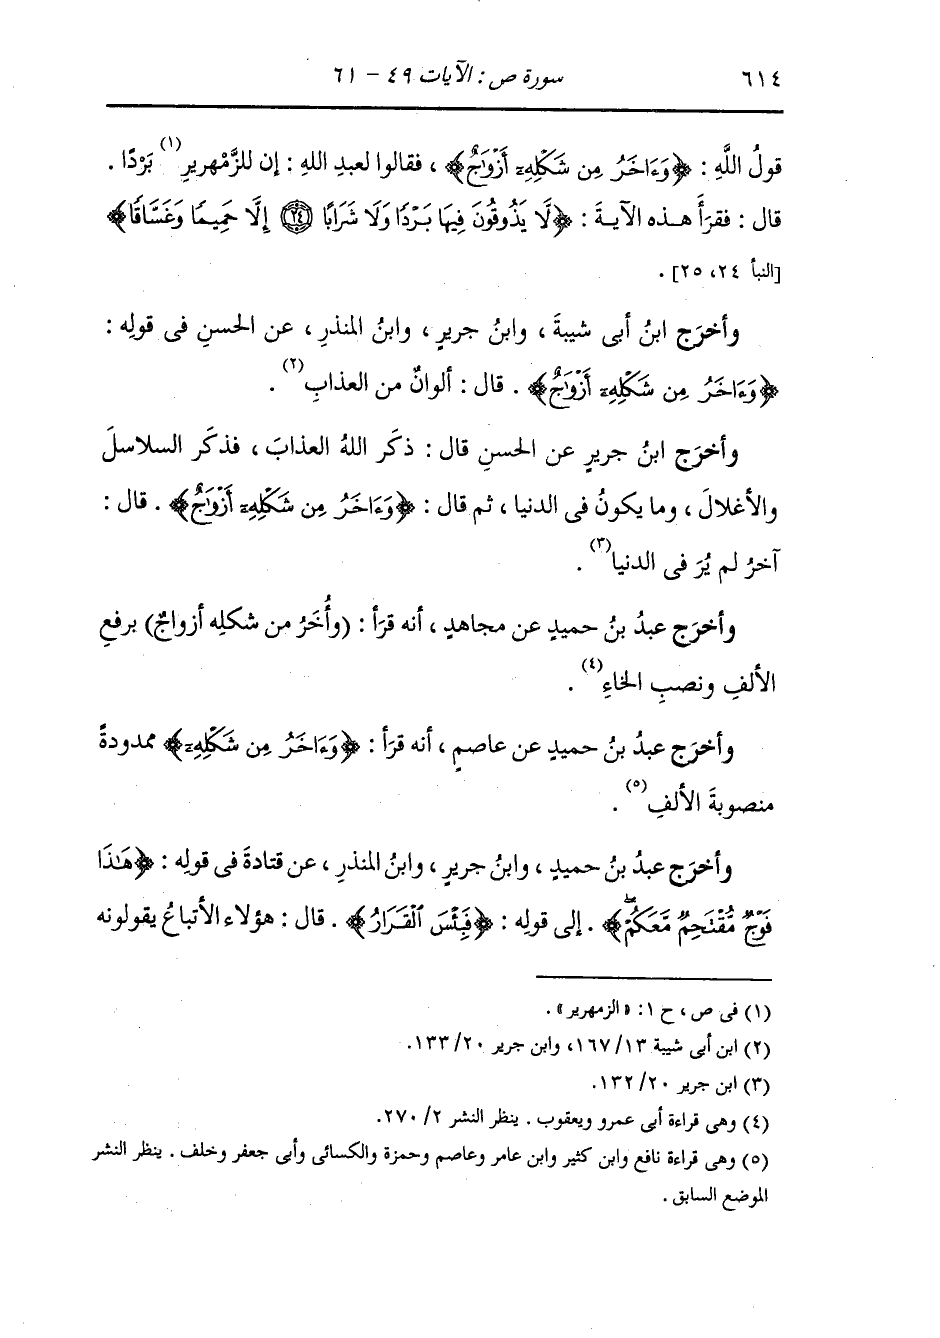 ٦١٤ سورة ص : الآيات ٤٩ – ٦١
قولُ اللَّهِ : ﴿وَءَاخَرُ مِن شَكْلِهِۦٓ أَزْوَٰجٌ﴾ ، فقالوا لعبدِ اللهِ : إن للزَّمْهريرِ(١) بَرْدًا .
قال : فقرَأَ هذه الآيةَ : ﴿لَّا يَذُوقُونَ فِيهَا بَرْدًا وَلَا شَرَابًا ۝٢٤ إِلَّا حَمِيمًا وَغَسَّاقًا﴾
[النبأ ٢٤، ٢٥] .
وأخرَج ابنُ أبى شيبةَ ، وابنُ جريرٍ ، وابنُ المنذرِ ، عن الحسنِ فى قولِه :
﴿وَءَاخَرُ مِن شَكْلِهِۦٓ أَزْوَٰجٌ﴾ . قال : ألوانٌ من العذابِ(٢) .
وأخرَج ابنُ جريرٍ عن الحسنِ قال : ذكَر اللهُ العذابَ ، فذكَر السلاسلَ
والأغلالَ ، وما يكونُ فى الدنيا ، ثم قال : ﴿وَءَاخَرُ مِن شَكْلِهِۦٓ أَزْوَٰجٌ﴾ . قال :
آخرُ لم يُرَ فى الدنيا(٣) .
وأخرَج عبدُ بنُ حميدٍ عن مجاهدٍ ، أنه قرَأ : (وأُخَرُ من شكلِه أزواجٌ) برفعِ
الألفِ ونصبِ الخاءِ(٤) .
وأخرَج عبدُ بنُ حميدٍ عن عاصمٍ ، أنه قرَأ : ﴿وَءَاخَرُ مِن شَكْلِهِۦٓ﴾ ممدودةً
منصوبةَ الألفِ(٥) .
وأخرَج عبدُ بنُ حميدٍ ، وابنُ جريرٍ ، وابنُ المنذرِ ، عن قتادةَ فى قولِه : ﴿هَٰذَا
فَوْجٌ مُّقْتَحِمٌ مَّعَكُمْ ۖ﴾ . إلى قولِه : ﴿فَبِئْسَ ٱلْقَرَارُ﴾ . قال : هؤلاء الأتباعُ يقولونه
(١) فى ص ، ح ١: « الزمهرير» .
(٢) ابن أبى شيبة ١٦٧/١٣، وابن جرير ١٣٣/٢٠.
(٣) ابن جرير ١٣٢/٢٠.
(٤) وهى قراءة أبى عمرو ويعقوب . ينظر النشر ٢٧٠/٢.
(٥) وهى قراءة نافع وابن كثير وابن عامر وعاصم وحمزة والكسائى وأبى جعفر وخلف . ينظر النشر
الموضع السابق .